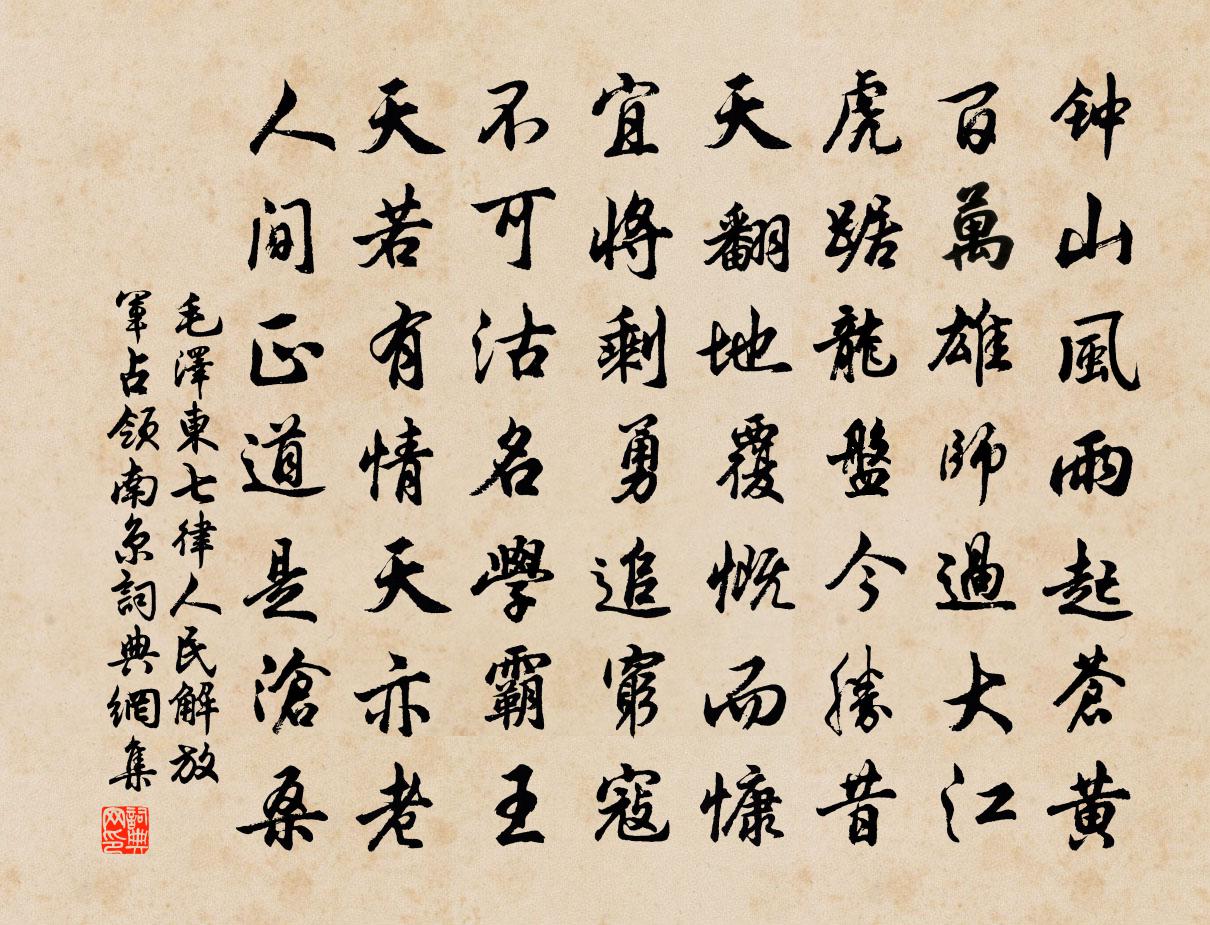 钟山風雨起蒼黃
百萬雄師過大江
虎踞龍盤今勝昔
天翻地覆慨而慷
宜將剩勇追窮寇
不可沽名學霸王
天若有情天亦老
人间正道是滄桑
毛澤東七律人民解放
軍占領南京詞典網集
詞典
网印